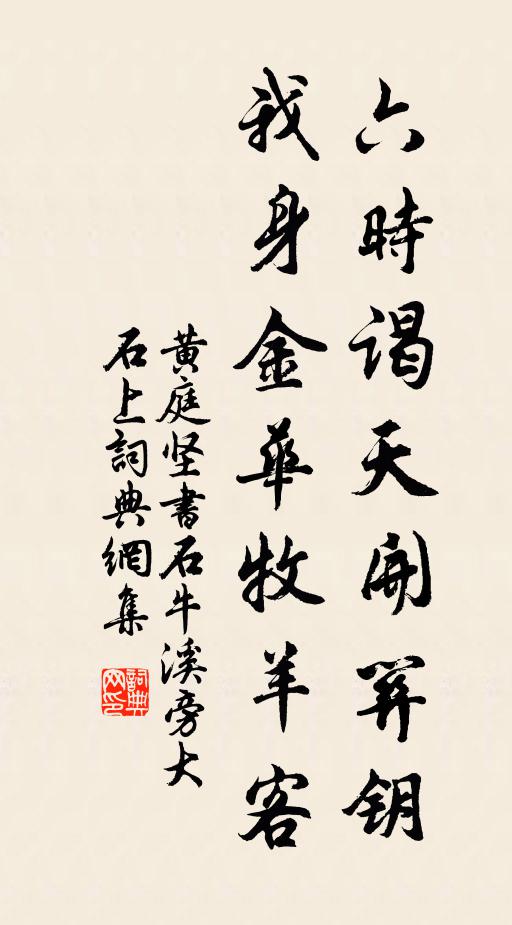 六時謁天開關钥
我身金華牧羊客
黄庭坚書石牛溪旁大
石上詞典網集
詞典网印